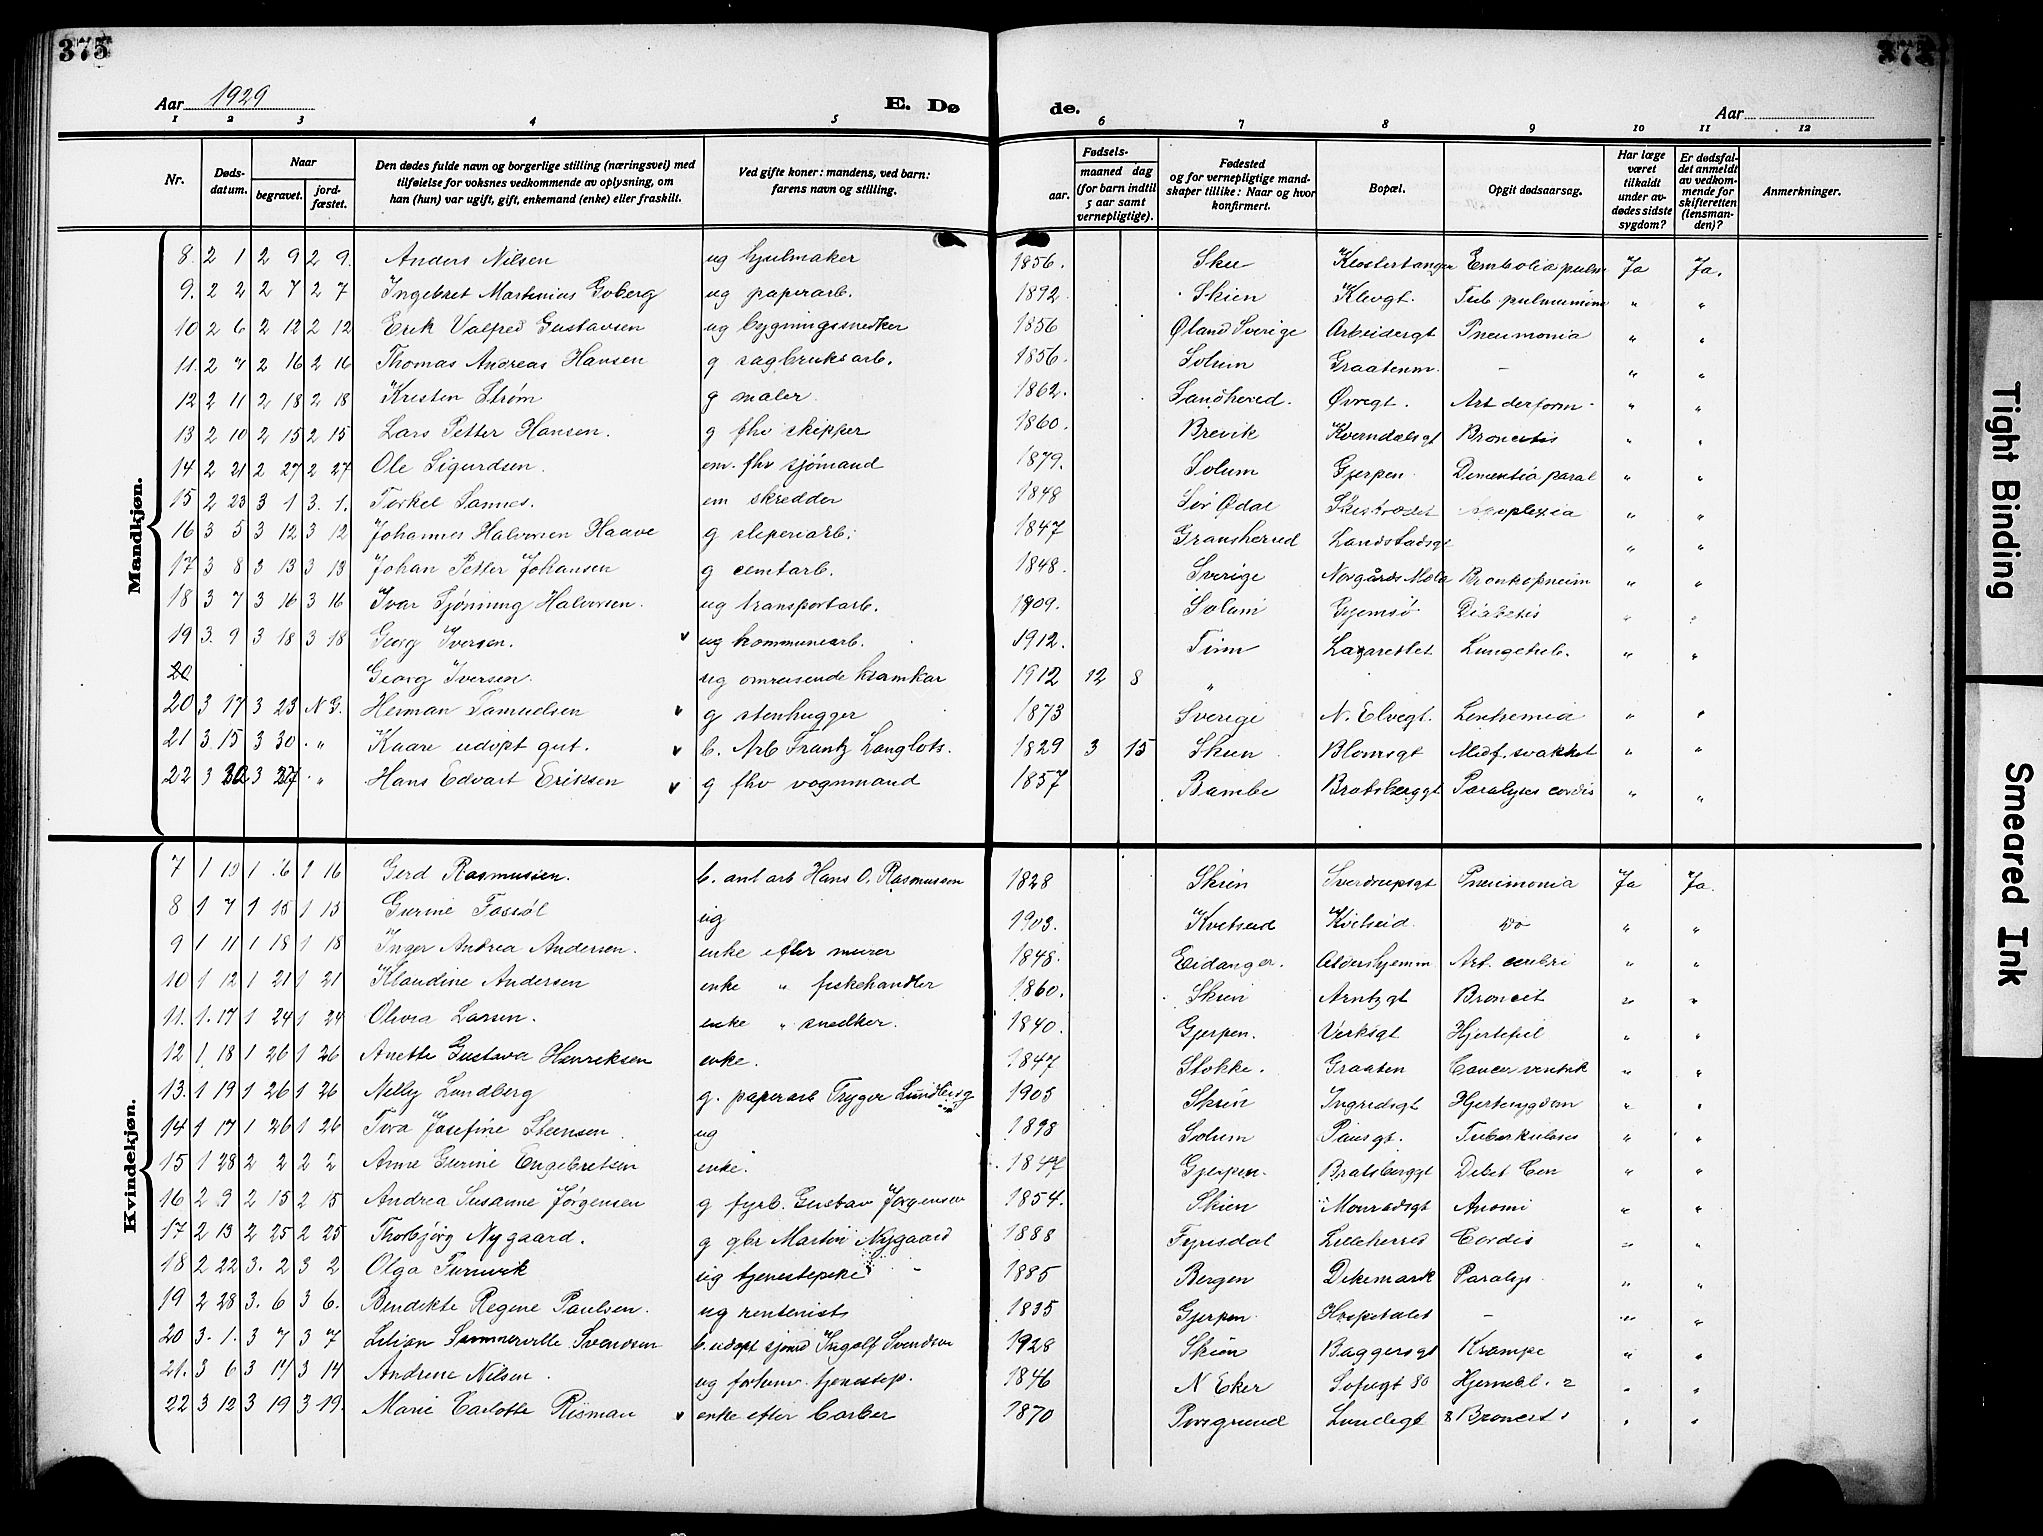 375 375
Aar 1929 E. Dø de. Aar
1 2 3 4 5 6 7 8 9 10 11 12
Nr. Døds-datum. Naar begravet. jord-fæstet. Den dødes fulde navn og borgerlige stilling (næringsvei) med tilføielse for voksnes vedkommende av oplysning, om han (hun) var ugift, gift, enkemand (enke) eller fraskilt. Ved gifte koner: mandens, ved barn: farens navn og stilling. Fødsels- aar. maaned dag (for barn indtil 5 aar samt vernepligtige). Fødested og for vernepligtige mand-skaper tillike: Naar og hvor konfirmert. Bopæl. Opgit dødsaarsag. Har læge været tilkaldt under av-dødes sidste sygdom? Er dødsfal-det anmeldt av vedkom-mende for skifteretten (lensman-den)? Anmerkninger.
Mandkjøn.
8. 2 1 2 9 2 9. Anders Nilsen ug hjulmaker 1856. Klostertangen Embolia pulm Ja Ja.
9. 2 2 2 7 2 7 Ingebret Martinius Goberg ug paperarb. 1892 Skien Klevgt. Tub. " "
10 2 6 2 12 2 12 Erik Valfred Gustavsen ug bygningssnedker 1856 Øland Sverige Arbeidergt Pneumonia " "
11. 2 7 2 16 2 16 Thomas Andreas Hansen g sagbruksarb. 1856. Solum Graatenm. - " "
12 2 11 2 18 2 18 Kristen Strøm g maler. 1862. Sandherred. Øvregt. Art deform " "
13 2 10 2 15 2 15 Lars Petter Hansen. g fhv skipper 1860. Brevik Kverndalsgt Bronchitis " "
14 2 21 2 27 2 27 Ole Sigurdsen. em. fhv sjømand 1879. Solum Gjerpen Dementia paral " "
15 2 23 3 1 3. 1. Torkel Sannes. em skredder 1848 Apoplexia " "
16 3 5 3 12 3 12 Johannes Halvorsen Haave g sleperiarb. 1847 Gransherred Landstadsgt " "
17 3 8 3 13 3 13 Johan Petter Johansen g cemtarb. 1848. Sverige Bronkopneum " "
18 3 7 3 16 3 16 Ivar Tjønning Halvorsen. ug transportarb. 1909. Solum Gjemsø Diabetes " "
19 3. 9 3 18 3 18 Georg Iversen. v ug kommunearb. 1912. Tinn Lazarettet Lungetub. " "
20 Georg Iversen. ug omreisende kramkar 1912 12 8 "
20 3 17 3 23 N G. Herman Samuelsen v g stenhugger 1873 Sverige N. Elvegt. " "
21 3. 15 3 30 " Kaare udøpt gut. v b. Arb Frantz Langlots. 1829 3 15 Skien Blomsgt Medf. svakhet " "
22 3 3 27 " Hans Edvart Eriksen v g fhv vognmand 1857 Bamble Bratsberggt Paralyses cordis " "
Kvindekjøn.
7 1 1 1 16 Gerd Rasmussen. b. ant arb Hans O. Rasmussen 1828 Skien Sverdrupsgt Pneumonia Ja Ja.
8 1 7 1 15 1 15 Gurine Fossøl ug 1903. Kviteseid Kviteseid. do " "
9 1 11 1 18 1 18 Inger Andrea Andersen. enke efter murer 1848. Eidanger. Aldershjemm Art. " "
10 1 12 1 21 1 21 Klaudine Andersen enke " fiskehandler 1860. Skien Arntzgt Broncit " "
11. 1. 17 1 24 1 24 Olivia Larsen. enke " snedker. 1840. Gjerpen. Verksgt Hjertefeil " "
12 1. 18 1 26 1 26 Anette Gustava Henriksen enke. 1847 Stokke. Graaten Cancer ventrik " "
13. 1 19 1 26 1 26 Nelly Lundberg g. paperarb Trygve Lundberg 1905 Skien Ingridsgt Hjertesygdom " "
14 1 17 1 26 1 26 Tora Josefine Steensen ug 1898 Solum Pausgt. Tuberkulose " "
15 1 28 2 2 2 2 Anne Gurine Engebretsen enke. 1847 Gjerpen. Bratsberggt " "
16 2 9 2 15 2 15 Andrea Susanne Jørgensen g fyrb. Gustav Jørgensen 1854. Skien Monradsgt Anomi " "
17 2 13 2 25 2 25 Thorbjørg Nygaard. g gbr Martin Nygaard 1888 Fyrisdal Lilleherred Cordis " "
18 2 22 3. 2 3 2 Olga Turnvik ug tjenestepike 1885 Bergen Dikemark Paralys. " "
19 2 28 3. 6 3 6. Bendikte Regine Paulsen. ug rentenist 1835 Gjerpen Hospitalet - " "
20 3. 1. 3 7 3 7 Lilian Summerville Svendsen b. udøpt sjømd Ingolf Svendsen 1928 Skien Baggersgt Krampe " "
21. 3 6 3 14 3 14 Andrine Nilsen. ug forhenv. tjenestep. 1846 N Eker Sofugt 80 Hjernebl. " "
22 3 12 3 19 3 19. Marie Carlotte Risman v enke efter barber 1870 Porsgrund Lundegt 8 Broncit " "
Tight Binding
Smeared Ink